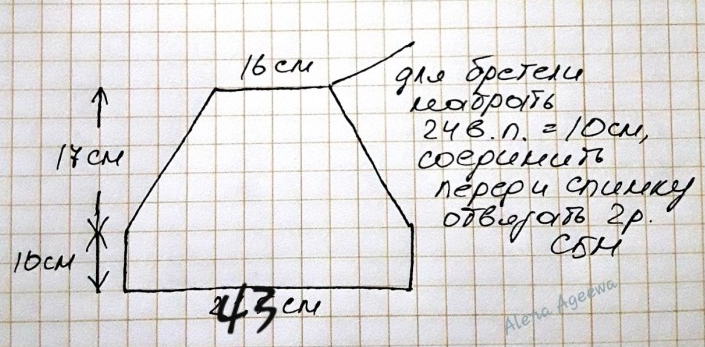 16 см
для бретели
набрать
24 в.п. = 10 см,
соединить
перед и спинку
отвязать 2 р.
СБН
17 см
10 см
43 см
Alena Ageewa